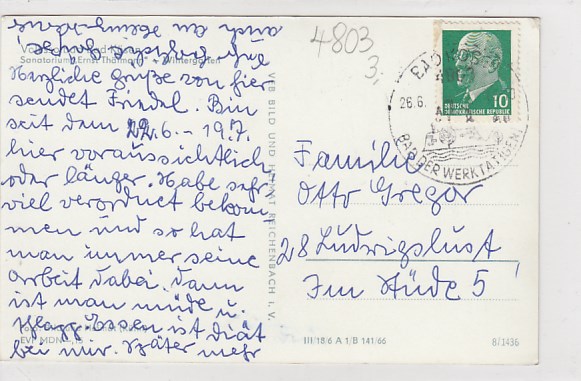 4803
3,-
Sanatorium "Ernst Thälmann" - Wintergarten
Herzliche Grüße von hier
sendet Friedel. Bin
seit dem 22.6. - 19.7.
hier voraussichtlich
oder länger. Habe sehr
viel verordnet bekom
men und so hat
man immer seine
Arbeit dabei. Dann
ist man müde u.
Essen ist diät
bei mir. Später mehr
EVP MDN -,15
VEB BILD UND HEIMAT REICHENBACH I. V.
III/18/6 A 1/B 141/66
8/1436
DEUTSCHE
DEMOKRATISCHE REPUBLIK
10
26.6.
BAD DER WERKTÄTIGEN
Familie
Otto Gregor
28 Ludwigslust
Im Stüde 5